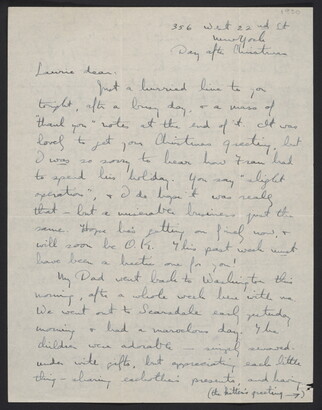 356 West 22nd St
New York
Day after Christmas
Laurie dear -
Just a hurried line to you
tonight, after a busy day, & a mass of
"thank you" notes at the end of it. It was
lovely to get your Christmas greeting, but
I was so sorry to hear how Fran had
to spend his holiday. You say "slight
operation", & I do hope it was really
that - but a miserable business just the
same. Hope he's getting on finely now, &
will soon be O.K. This past week must
have been a hectic one for you!
My Dad went back to Washington this
morning, after a whole week here with us.
We went out to Scarsdale early yesterday
morning & had a marvelous day. The
children were adorable - simply
under with gifts, but appreciating each little
thing - sharing each other's presents, and having
(the kitten's greeting →)